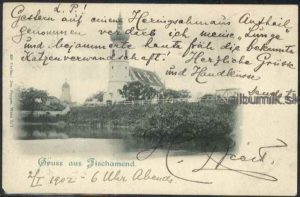 L. P.!
Gestern auf einem Heringschmaus Antheil
genommen verdarb ich meine Zunge
und bejammerte heute früh die bekannte
Katzenverwandschaft! Herzliche Grüsse
und Handküsse
albumik.sk
Gruss aus Fischamend.
2/I 1902 - 6 Uhr Abends